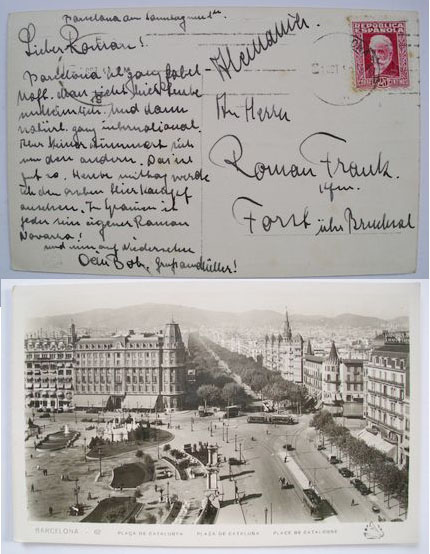 Barcelona am Sonntagmorgen
Lieber Roman!
Barcelona ist ganz fabel-
haft. Man sieht hier Leute
und dann
natürl. ganz international.
Kein Mensch kümmert sich
um den andern. Das ist
gut so. Heute mittag werde
ich den ersten Stierkampf
ansehen. In Spanien ist
jeder sein eigener Roman
Navarro!
und nun auf Wiedersehen
Dein Bob,
Alemania.
REPUBLICA
ESPAÑOLA
An Herrn
Roman Frank.
Forst über Bruchsal
BARCELONA - 62 PLAÇA DE CATALUNYA PLAZA DE CATALUÑA PLACE DE CATALOGNE